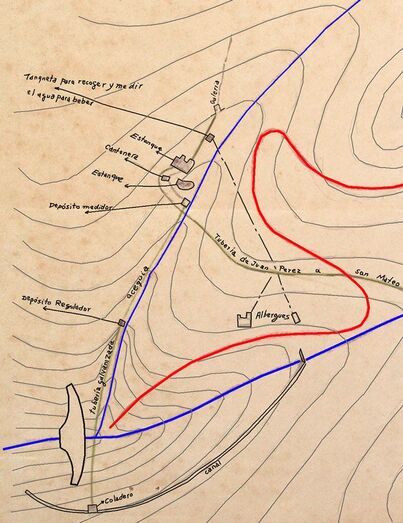 Tanqueta para recoger y medir
el agua para beber
Galería
Estanque
Cantonera
Estanque
Depósito medidor
Tubería de Juan Perez a San Mateo
acequia
Depósito Regulador
Albergues
tubería galvanizada
canal
Coladero